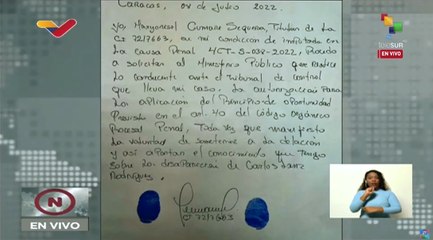 Caracas, 08 de Julio 2022.
Yo, Maryonesi Cumare Sequera, Titular de la
CI 7217663, en mi condición de imputada en
La Causa Penal 4CT-S-038-2022, Procedo
a solicitar al Ministerio Público que realice
Lo conducente ante el Tribunal de Control
que lleva mi caso, La autorización Para
La aplicación del Principio de oportunidad
Previsto en el art. 40 del Código Orgánico
Procesal Penal, Toda vez que manifiesto
La voluntad de someterme a la delación
y así aportar el conocimiento que tengo
sobre la desaparición de Carlos
Rodríguez.
CI 7217663
teleSUR
EN VIVO
N
EN VIVO